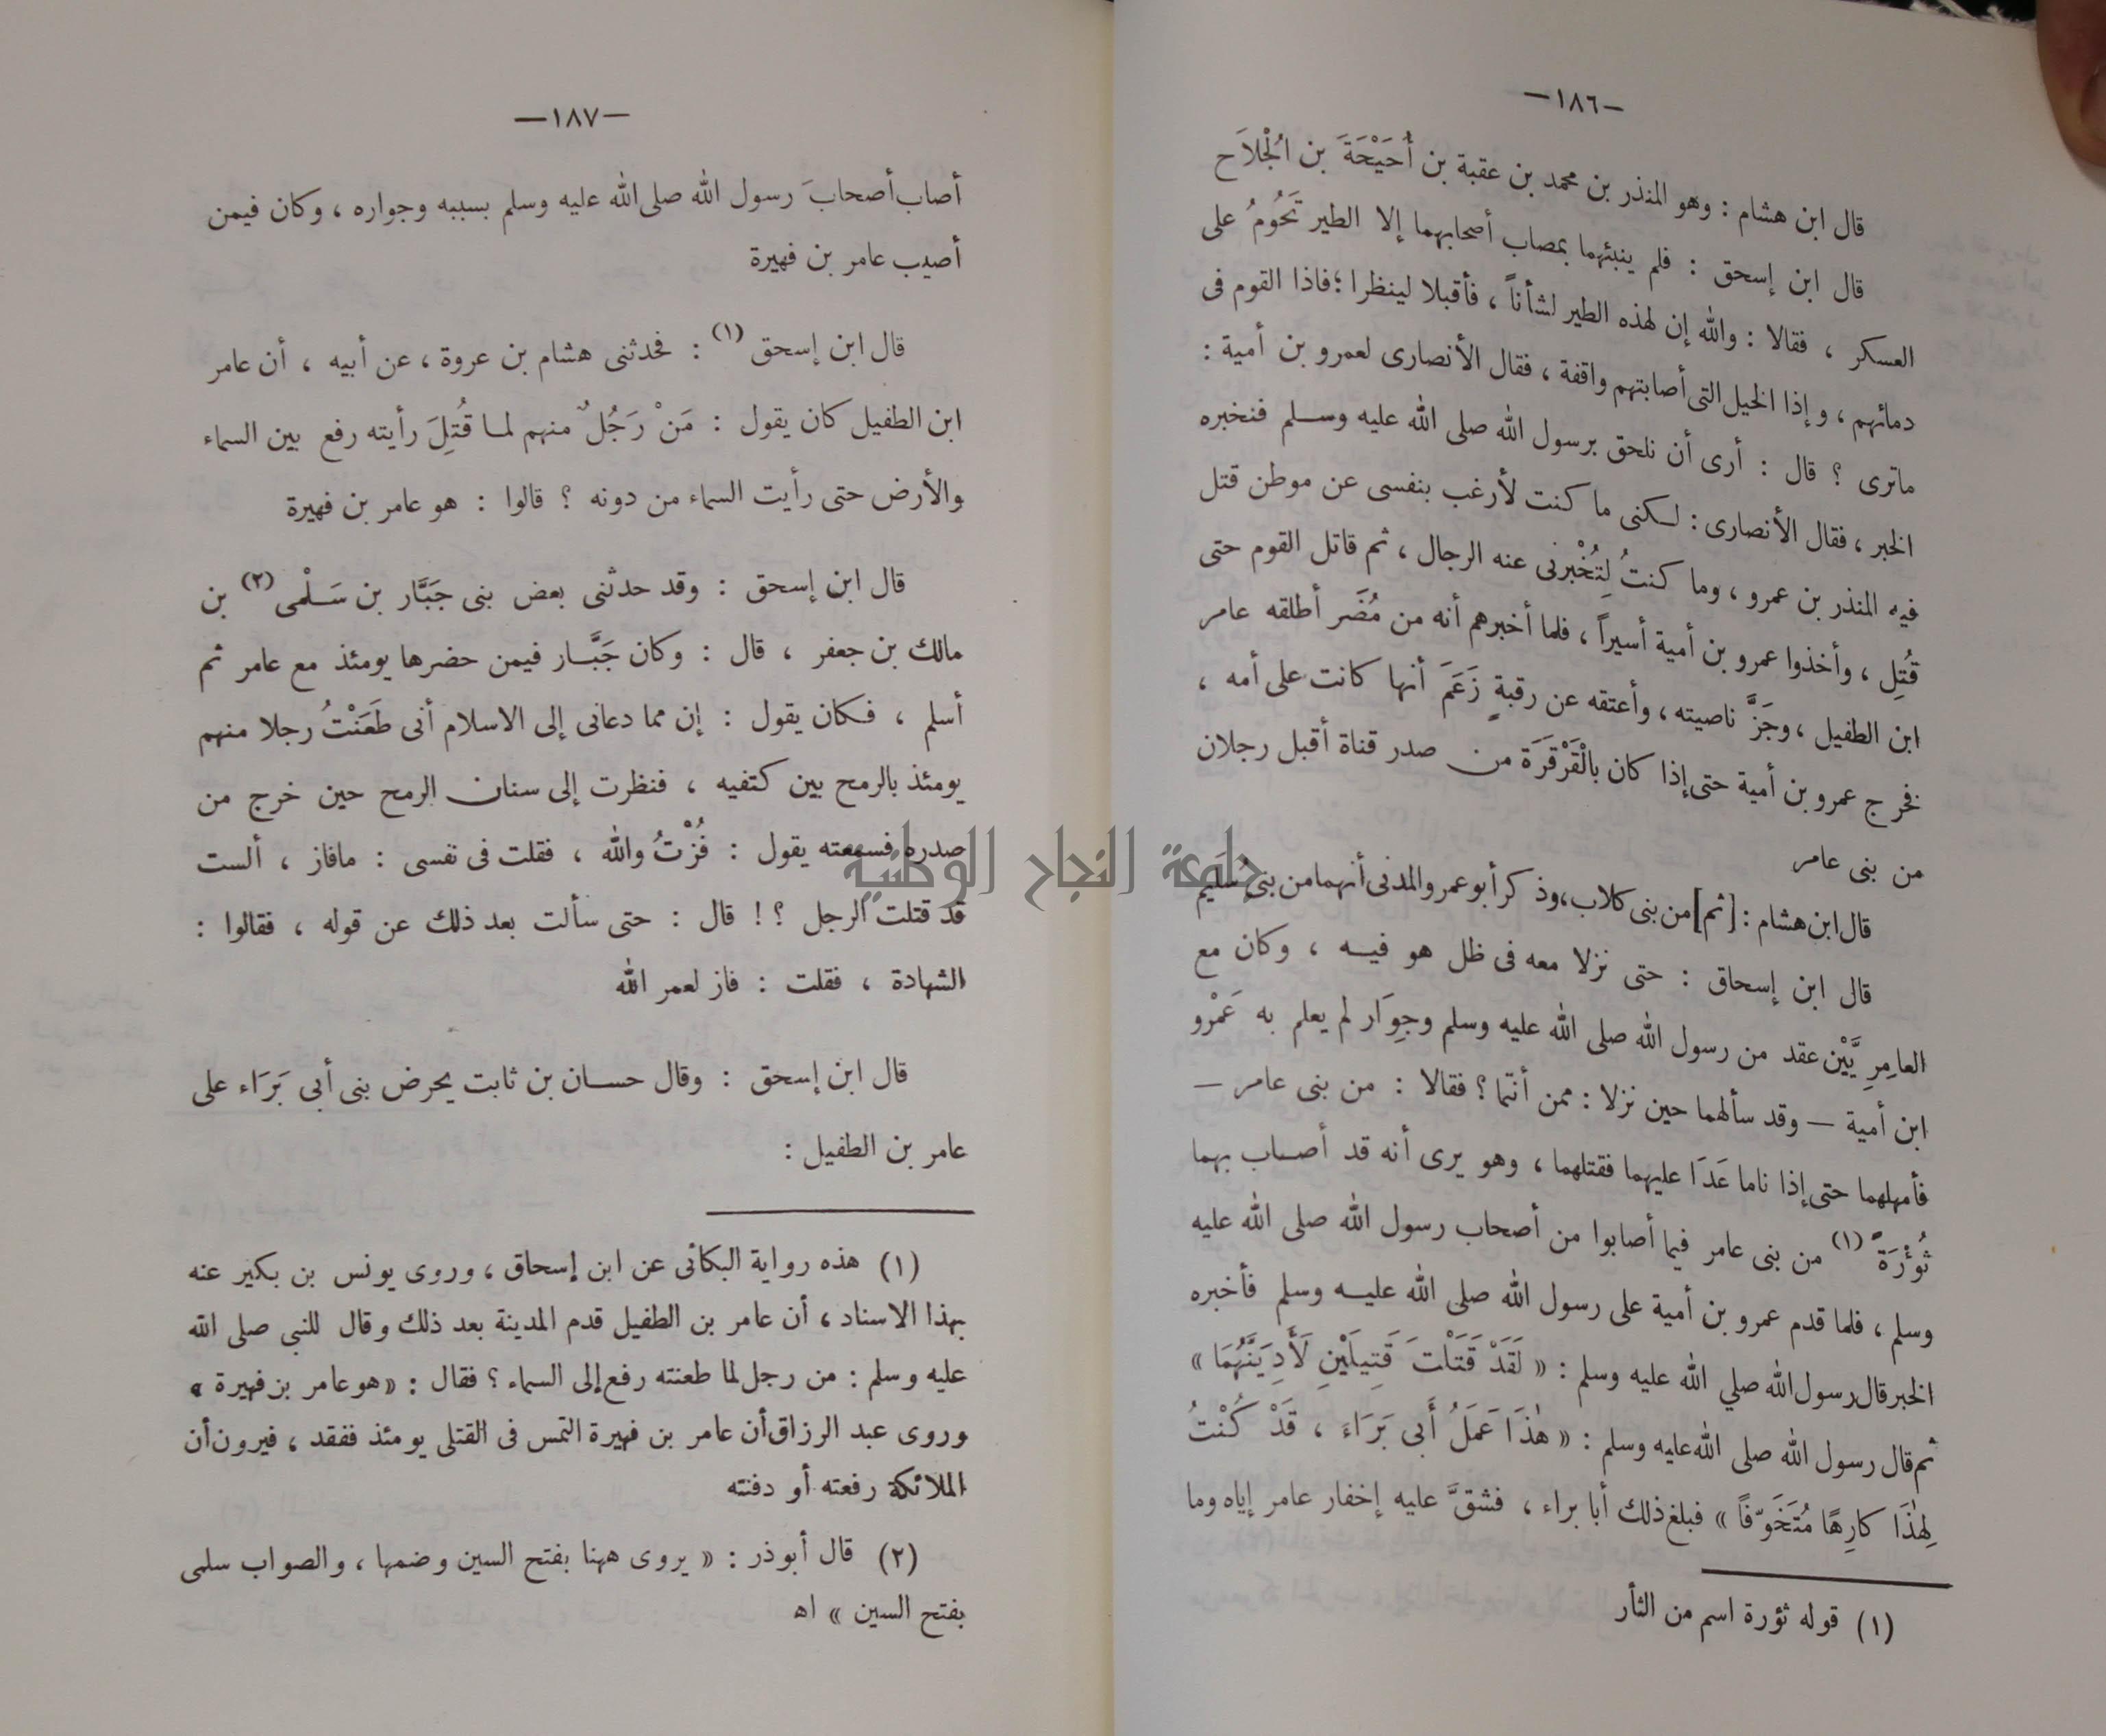 —١٨٦—
قال ابن هشام : وهو المنذر بن محمد بن عقبة بن أُحَيْحَةَ بن الْجُلاَح
قال ابن إسحق : فلم ينبئهما بمصاب أصحابهما إلا الطير تَحُومُ على
العسكر ، فقالا : والله إن لهذه الطير لشأناً ، فأقبلا لينظرا ؛ فاذا القوم فى
دمائهم ، وإذا الخيل التى أصابتهم واقفة ، فقال الأنصارى لعمرو بن أمية :
ماترى ؟ قال : أرى أن نلحق برسول الله صلى الله عليه وسلم فنخبره
الخبر ، فقال الأنصارى : لكنى ما كنت لأرغب بنفسى عن موطن قتل
فيه المنذر بن عمرو ، وما كنتُ لِتُخْبرنى عنه الرجال ، ثم قاتل القوم حتى
قُتِل ، وأخذوا عمرو بن أمية أسيراً ، فلما أخبرهم أنه من مُضَر أطلقه عامر
ابن الطفيل ، وجَزَّ ناصيته ، وأعتقه عن رقبةٍ زَعَمَ أنها كانت على أمه ،
فخرج عمرو بن أمية حتى إذا كان بالْقَرْقَرَة من صدر قناة أقبل رجلان
من بنى عامر
قال ابن هشام : [ثم] من بنى كلاب، وذكر أبو عمرو المدنى أنهما من بنى سُلَيم
قال ابن إسحاق : حتى نزلا معه فى ظل هو فيه ، وكان مع
العامِرِيَّيْن عقد من رسول الله صلى الله عليه وسلم وجِوَار لم يعلم به عَمْرو
ابن أمية — وقد سألهما حين نزلا : ممن أنتما ؟ فقالا : من بنى عامر —
فأمهلهما حتى إذا ناما عَدَا عليهما فقتلهما ، وهو يرى أنه قد أصاب بهما
ثُؤْرَةً (١) من بنى عامر فيما أصابوا من أصحاب رسول الله صلى الله عليه
وسلم ، فلما قدم عمرو بن أمية على رسول الله صلى الله عليه وسلم فأخبره
الخبر قال رسول الله صلي الله عليه وسلم : « لَقَدْ قَتَلْتَ قَتِيلَيْنِ لَأَدِيَنَّهُمَا »
ثم قال رسول الله صلى الله عليه وسلم : « هٰذَا عَمَلُ أَبى بَرَاءَ ، قَدْ كُنْتُ
لِهٰذَا كارِهًا مُتَخَوِّفًا » فبلغ ذلك أبا براء ، فشقَّ عليه إخفار عامر إياه وما
(١) قوله ثؤرة اسم من الثأر
—١٨٧—
أصاب أصحابَ رسول الله صلى الله عليه وسلم بسببه وجواره ، وكان فيمن
أصيب عامر بن فهيرة
قال ابن إسحق (١) : فحدثنى هشام بن عروة ، عن أبيه ، أن عامر
ابن الطفيل كان يقول : مَنْ رَجُلٌ منهم لما قُتِلَ رأيته رفع بين السماء
والأرض حتى رأيت السماء من دونه ؟ قالوا : هو عامر بن فهيرة
قال ابن إسحق : وقد حدثنى بعض بنى جَبَّار بن سَلْمى (٢) بن
مالك بن جعفر ، قال : وكان جَبَّار فيمن حضرها يومئذ مع عامر ثم
أسلم ، فكان يقول : إن مما دعانى إلى الاسلام أنى طَعَنْتُ رجلا منهم
يومئذ بالرمح بين كتفيه ، فنظرت إلى سنان الرمح حين خرج من
صدره فسمعته يقول : فُزْتُ والله ، فقلت فى نفسى : مافاز ، ألست
قد قتلت الرجل ؟ ! قال : حتى سألت بعد ذلك عن قوله ، فقالوا :
الشهادة ، فقلت : فاز لعمر الله
قال ابن إسحق : وقال حسان بن ثابت يحرض بنى أبى بَرَاء على
عامر بن الطفيل :
(١) هذه رواية البكائى عن ابن إسحاق ، وروى يونس بن بكير عنه
بهذا الاسناد ، أن عامر بن الطفيل قدم المدينة بعد ذلك وقال للنبى صلى الله
عليه وسلم : من رجل لما طعنته رفع إلى السماء ؟ فقال : « هو عامر بن فهيرة »
وروى عبد الرزاق أن عامر بن فهيرة التمس فى القتلى يومئذ ففقد ، فيرون أن
الملائكة رفعته أو دفنته
(٢) قال أبوذر : « يروى ههنا بفتح السين وضمها ، والصواب سلمى
بفتح السين » اه
جامعة النجاح الوطنية